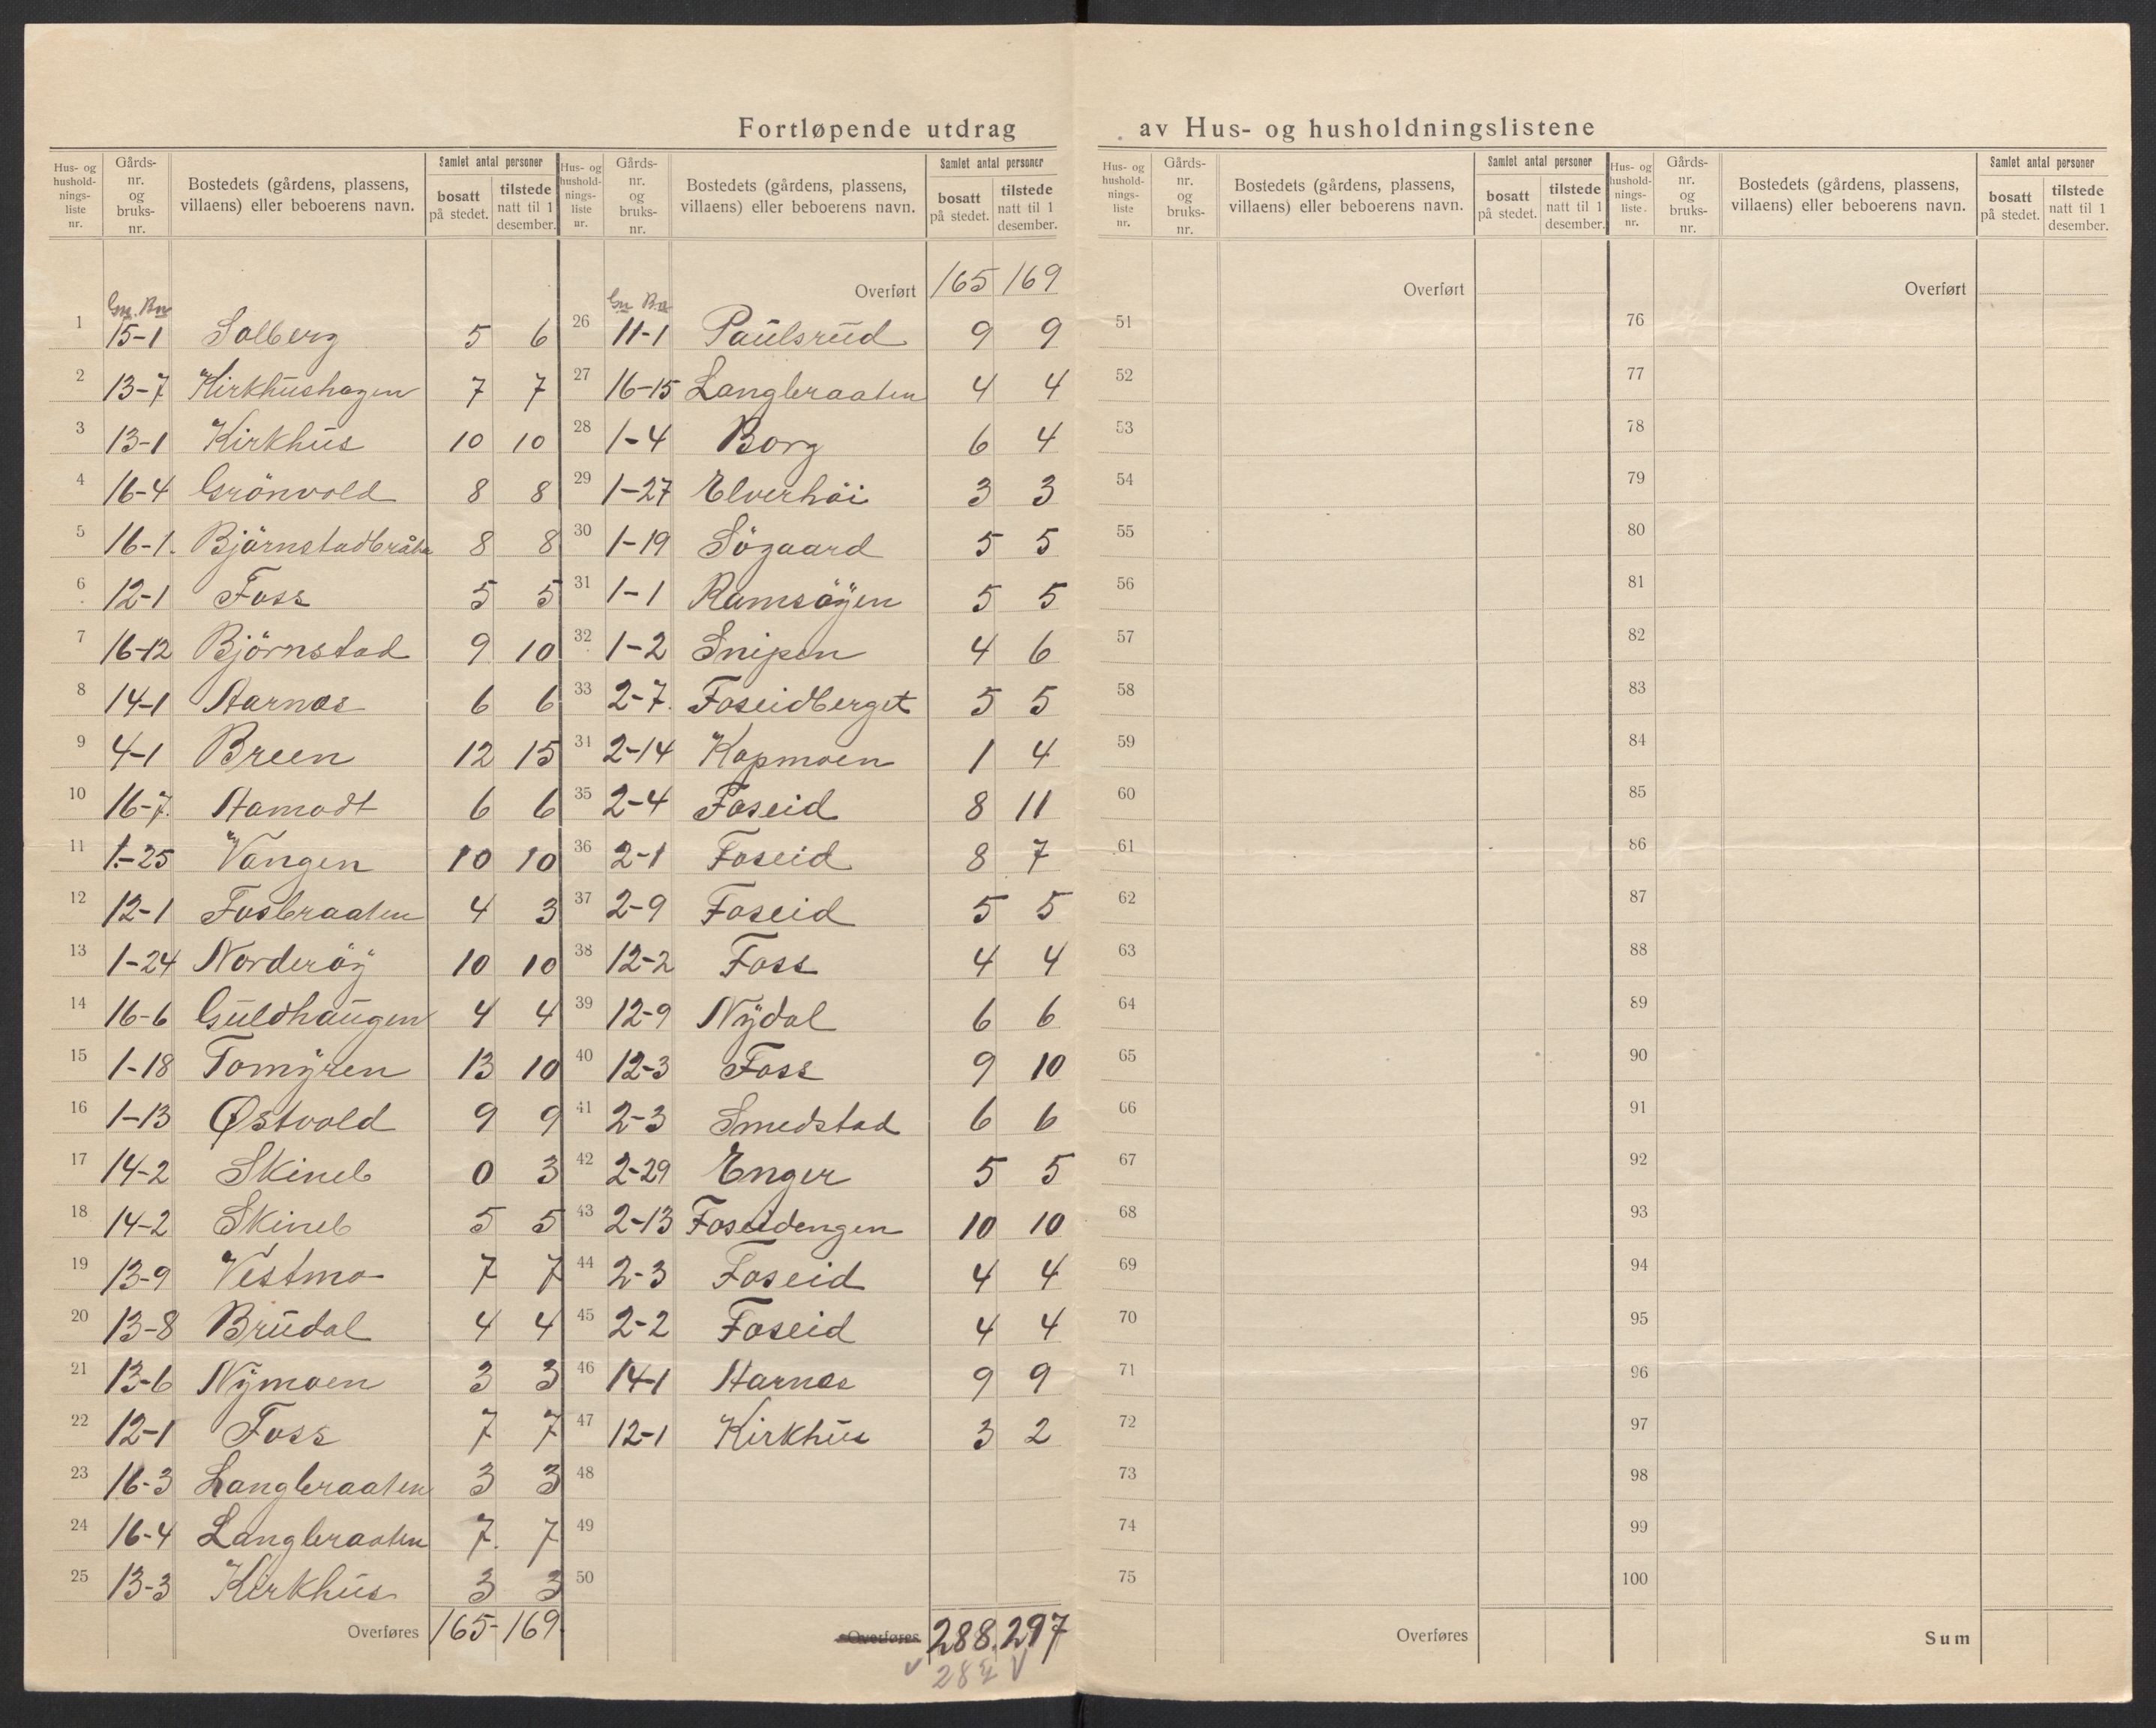 Fortløpende utdrag av Hus- og husholdningslistene
Hus- og husholdnings-liste nr. Gårds-nr. og bruks-nr. Bostedets (gårdens, plassens, villaens) eller beboerens navn. Samlet antal personer bosatt på stedet. tilstede natt til 1 desember.
Gn. Bn.
1 15-1 Solberg 5 6
2 13-7 Kirkhushagen 7 7
3 13-1 Kirkhus 10 10
4 16-4 Grönvold 8 8
5 16-1. Björnstadbråtn 8 8
6 12-1 Foss 5 5
7 16-12 Björnstad 9 10
8 14-1 Aarnes 6 6
9 4-1 Breen 12 15
10 16-7. Aamodt 6 6
11 1-25 Vangen 10 10
12 12-1 Fosbraaten 4 3
13 1-24 Norderöy 10 10
14 16-6 Guldhaugen 4 4
15 1-18 Tomyren 13 10
16 1-13 Østvold 9 9
17 14-2 Skineb 0 3
18 14-2 Skineb 5 5
19 13-9 Vestmo 7 7
20 13-8 Brudal 4 4
21 13-6 Nymoen 3 3
22 12-1 Foss 7 7
23 16-3 Langbraaten 3 3
24 16-4 Langbraaten 7. 7
25 13-3 Kirkhus 3 3
Overføres 165- 169.
Hus- og husholdnings-liste nr. Gårds-nr. og bruks-nr. Bostedets (gårdens, plassens, villaens) eller beboerens navn. Samlet antal personer bosatt på stedet. tilstede natt til 1 desember.
Overført 165 169
Gn Bn
26 11-1 Paulsrud 9 9
27 16-15 Langbraaten 4 4
28 1-4 Borg 6 4
29 1-27 Elverhöi 3 3
30 1-19 Sögaard 5 5
31 1-1 Ramsöyen 5 5
32 1-2 Snipen 4 6
33 2-7. Foseidberget 5 5
34 2-14 Kopmoen 1 4
35 2-4 Foseid 8 11
36 2-1 Foseid 8 7
37 2-9 Foseid 5 5
38 12-2 Foss 4 4
39 12-9 Nydal 6 6
40 12-3 Foss 9 10
41 2-3 Smedstad 6 6
42 2-29 Enger 5 5
43 2-13 Foseidengen 10 10
44 2-3 Foseid 4 4
45 2-2 Foseid 4 4
46 14-1 Aarnes 9 9
47 12-1 Kirkhus 3 2
48
49
50
Overføres 288. 297
Hus- og husholdnings-liste nr. Gårds-nr. og bruks-nr. Bostedets (gårdens, plassens, villaens) eller beboerens navn. Samlet antal personer bosatt på stedet. tilstede natt til 1 desember.
Overført
51
52
53
54
55
56
57
58
59
60
61
62
63
64
65
66
67
68
69
70
71
72
73
74
75
Overføres
Hus- og husholdnings-liste. nr. Gårds-nr. og bruks-nr. Bostedets (gårdens, plassens, villaens) eller beboerens navn. Samlet antal personer bosatt på stedet. tilstede natt til 1 desember.
Overført
76
77
78
79
80
81
82
83
84
85
86
87
88
89
90
91
92
93
94
95
96
97
98
99
100
Sum